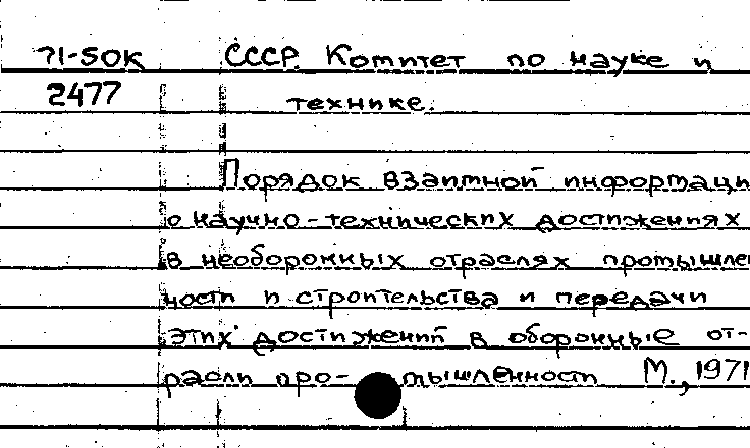 71-50K СССР. Комитет по науке и
2477 технике.
Порядок взаимной информаци
о научно-технических достижениях
в необоронных отраслях промышле
ности и строительства и передачи
этих достижений в оборонные от-
расли про- мышленности М., 1971